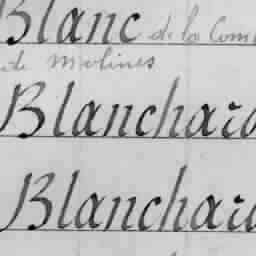 Blanc de la Com
de Molines
Blanchard
Blanchard